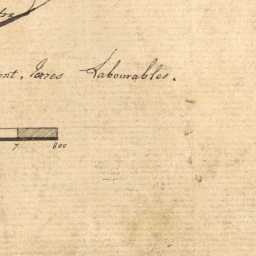 ont, Terres Labourables.
7 800